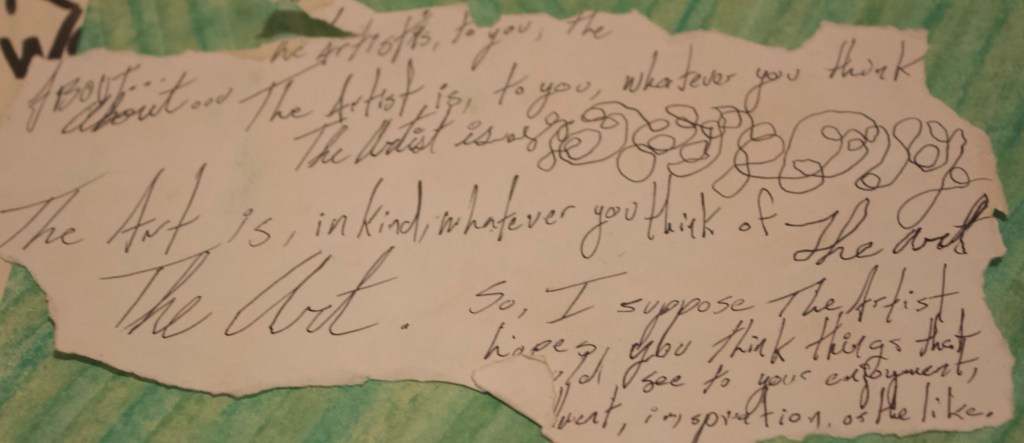 The Artist is, to you, the
About...
about... The Artist is, to you, whatever you think
The Artist is as
The Art is, in kind, whatever you think of The Art
The Art. So, I suppose The Artist
hopes, you think things that
see to your enjoyment,
inspiration, or the like.